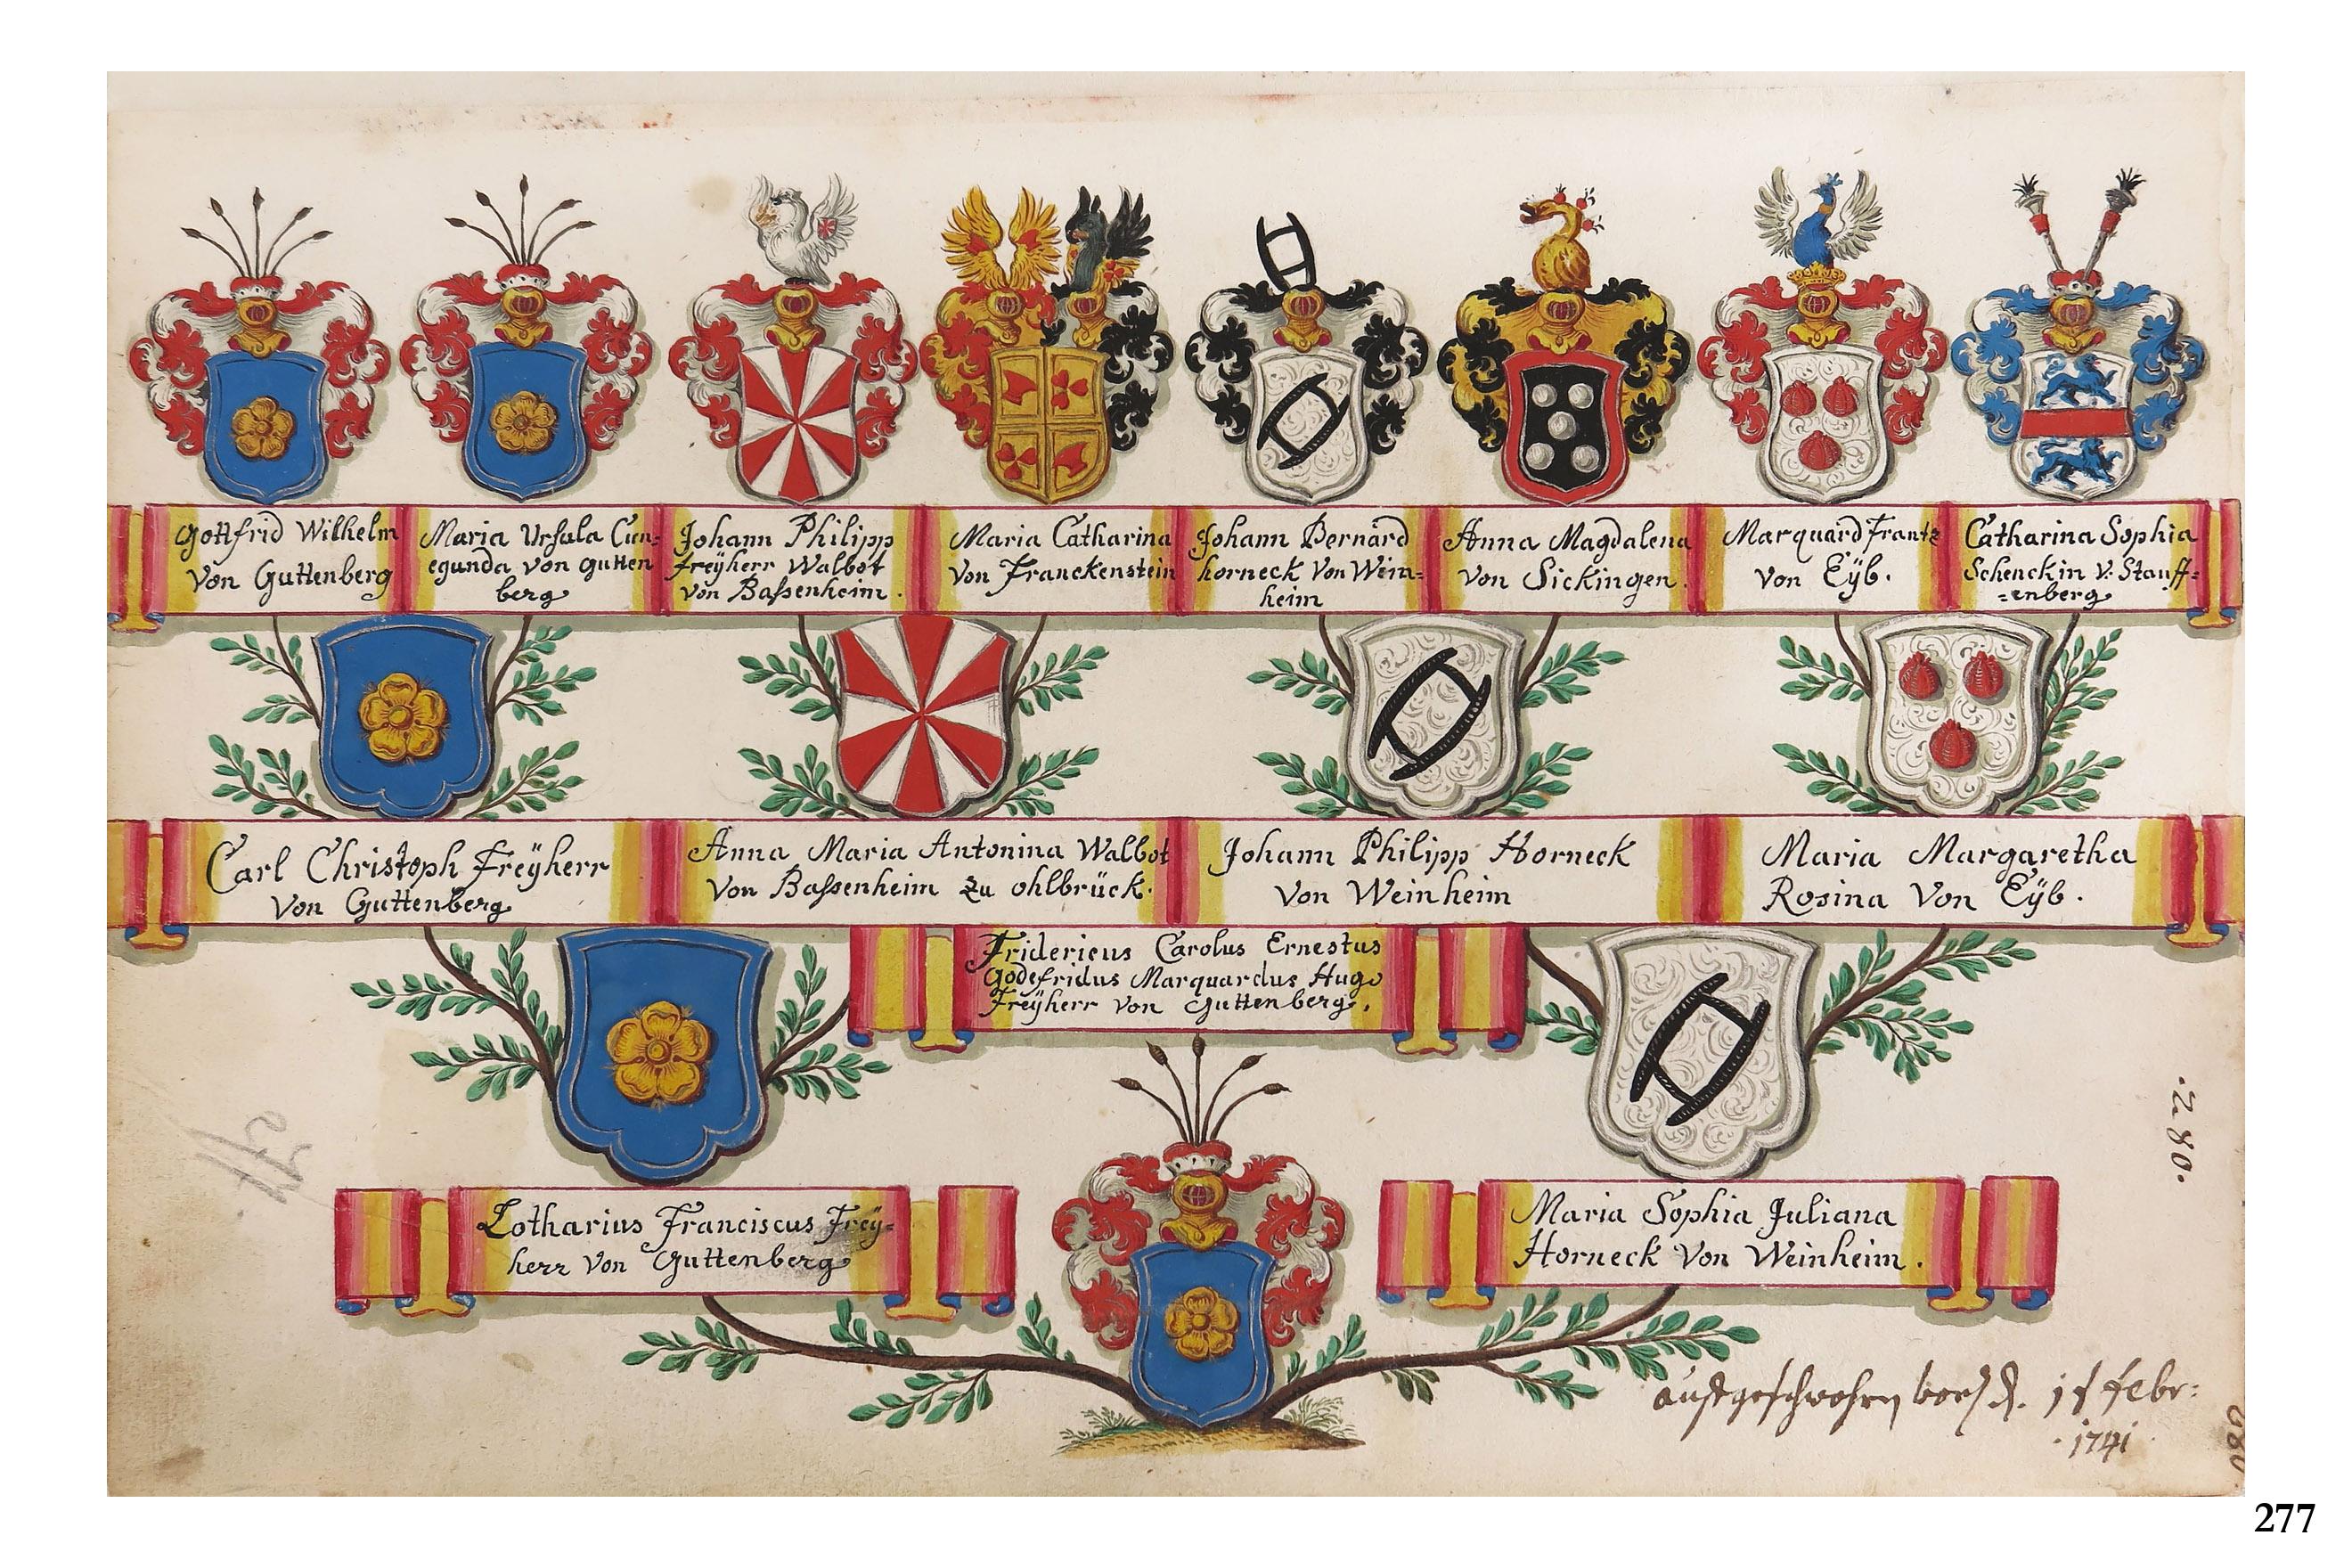 Gottfrid Wilhelm
Von Guttenberg
Maria Ursula Cun=
egunda von gutten
berg
Johann Philipp
freÿherr Walbot
von Baßenheim.
Maria Catharina
Von Franckenstein
Johann Bernard
horneck Von Wein=
heim
Anna Magdalena
von Sickingen.
Marquard Frantz
von Eÿb.
Catharina Sophia
Schenckin v: Stauff=
=enberg
Carl Christoph Freÿherr
Von Guttenberg
Anna Maria Antonina Walbot
Von Baßenheim zu ohlbrück.
Johann Philipp Horneck
Von Weinheim
Maria Margaretha
Rosina Von Eÿb.
Fridericus Carolus Ernestus
Godefridus Marquardus Hugo
Freÿherr von Guttenberg.
Lotharius Franciscus Freÿ=
herr von Guttenberg
Maria Sophia Juliana
Horneck Von Weinheim.
.280.
auffgeschwohren febr:
.1741
277